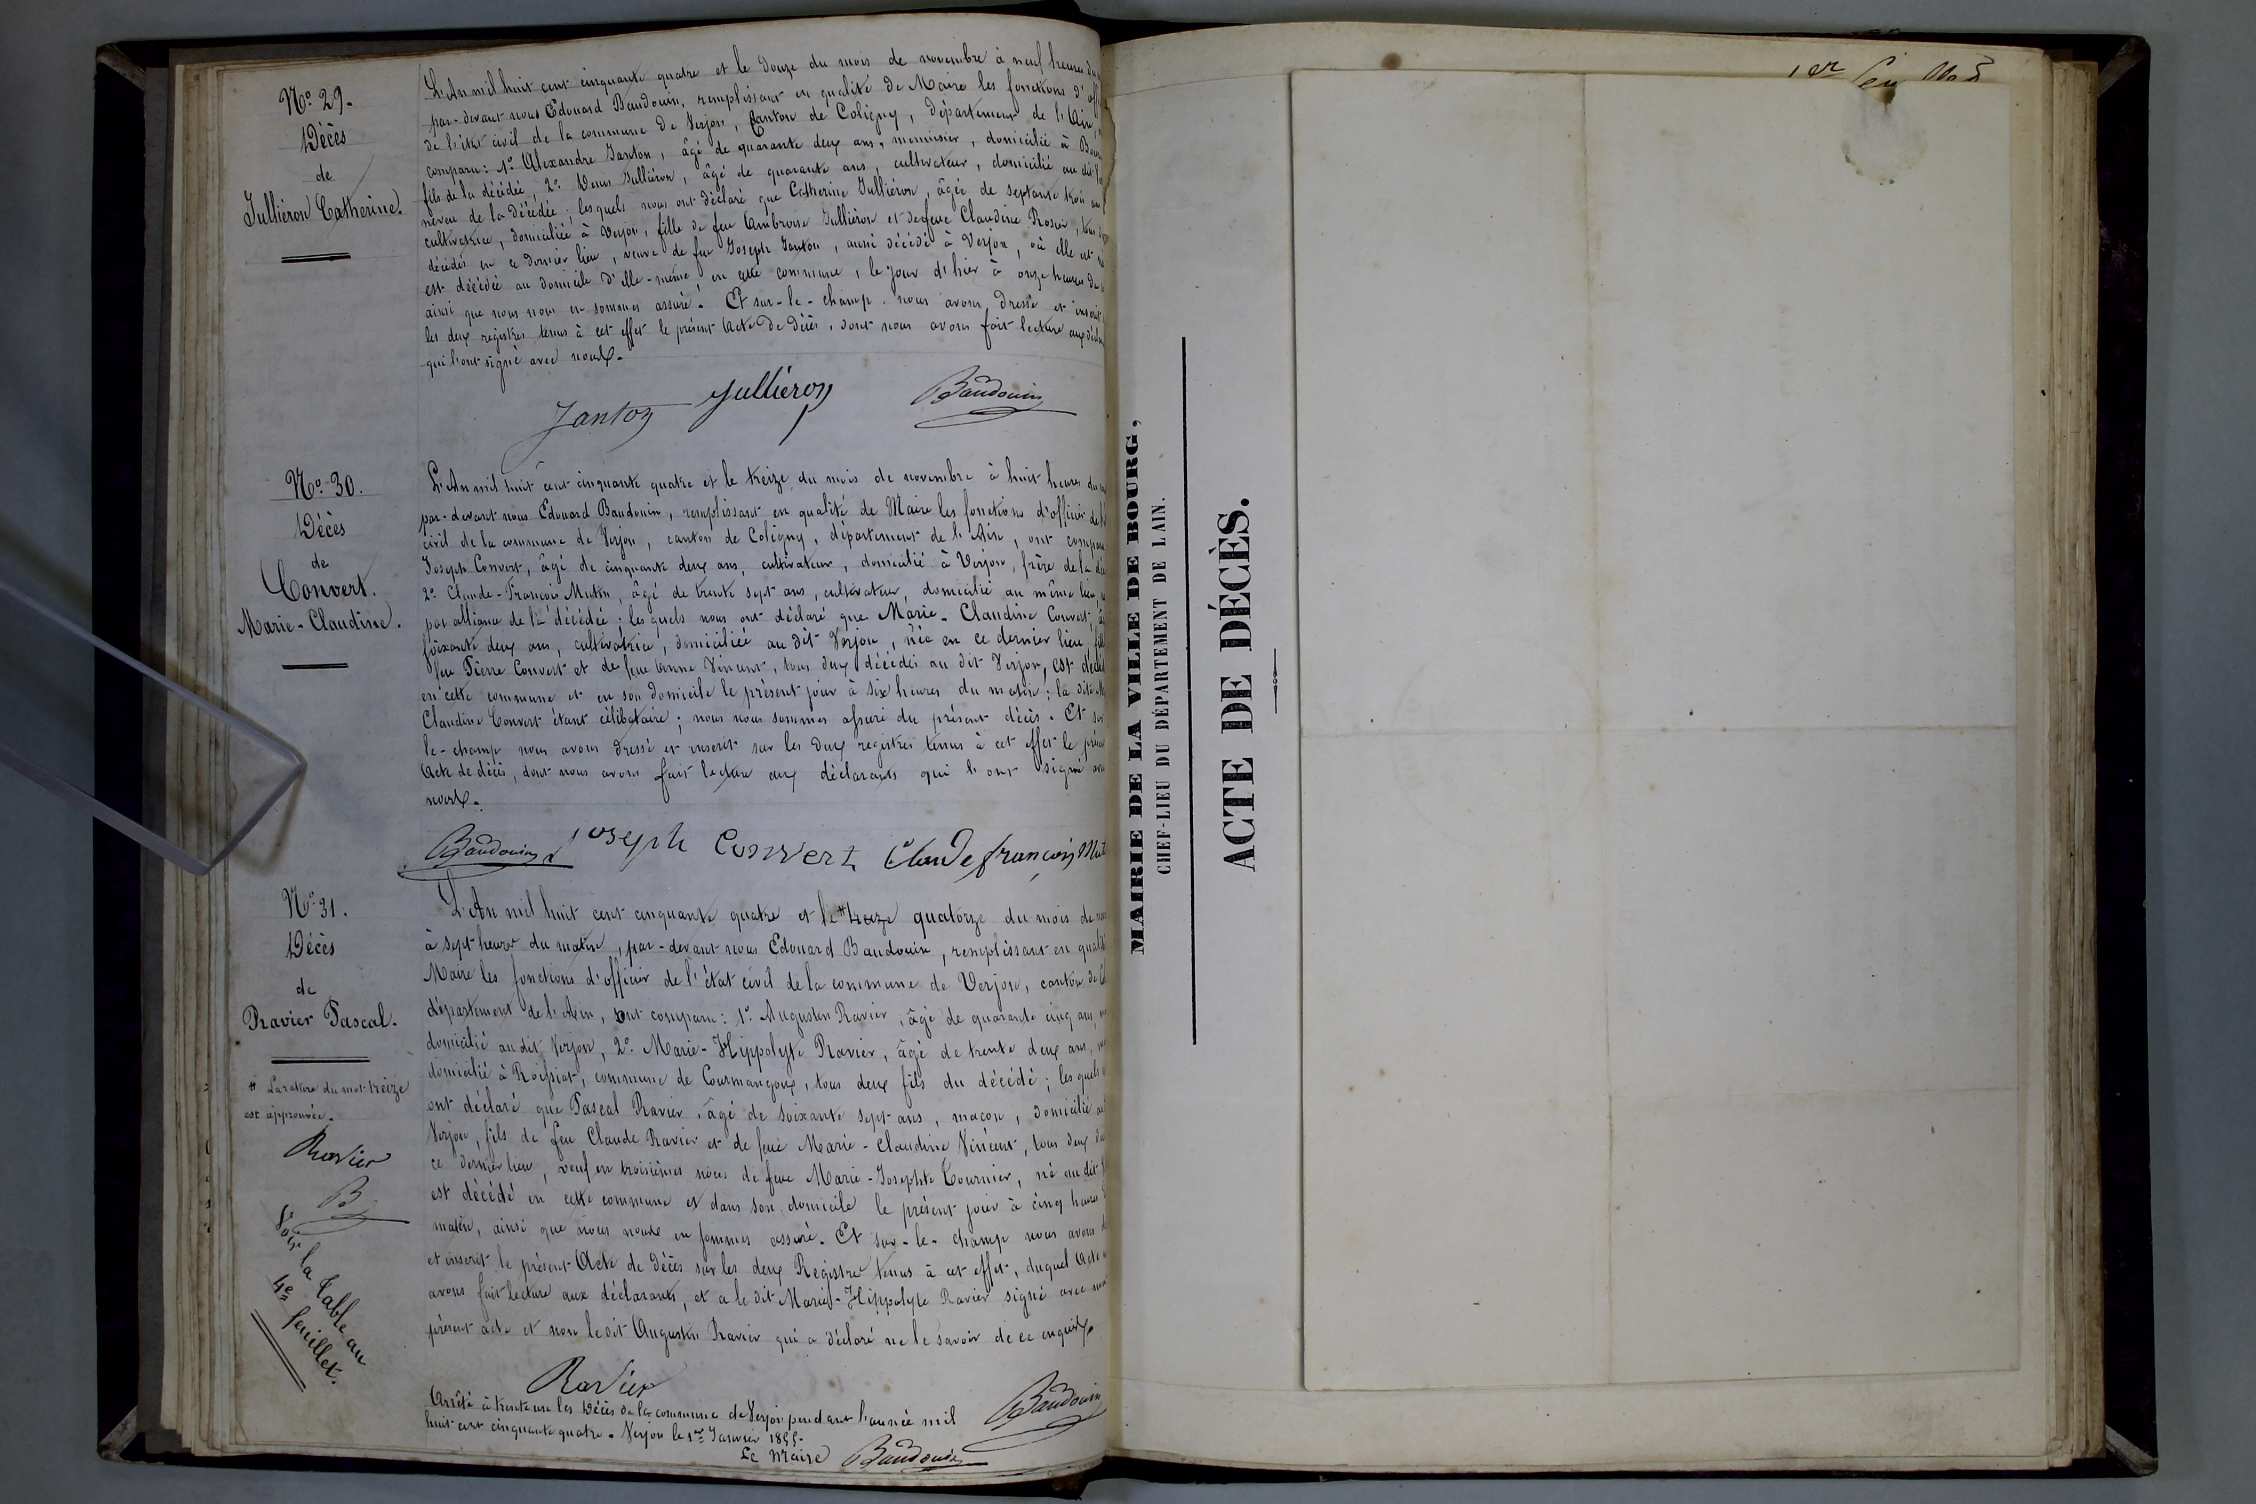 No. 29.
Décès
de
Jullieron Catherine.
L'An mil huit cent cinquante quatre et le douze du mois de novembre à neuf heures du
par-devant nous Edouard Baudouin, remplissant en qualité de Maire les fonctions d'
de l'état civil de la commune de Verjon, Canton de Coligny, département de l'Ain,
comparu: 1º. Alexandre Janton, âgé de quarante deux ans, menuisier, domicilié à
fils de la décédée, 2º. Denis Julliéron, âgé de quarante ans, cultivateur, domicilié au dit
neveu de la décédée; les quels nous ont déclaré que Catherine Julliéron, âgée de septante trois ans
cultivatrice, domiciliée à Verjon, fille de feu Ambroise Julliéron et de feue Claudine Rosier, tous
décédés en ce dernier lieu, veuve de feu Joseph Janton, aussi décédé à Verjon, où elle est
est décédée au domicile d'elle-même, en cette commune, le jour d'hier à onze heures du
ainsi que nous nous en sommes assuré. Et sur-le-champ nous avons dressé et inscrit
les deux registres tenus à cet effet le présent Acte de décès, dont nous avons fait lecture aux
qui l'ont signé avec nous.
Janton Julliéron Baudouin
No. 30.
Décès
de
Convert.
Marie-Claudine.
L'An mil huit cent cinquante quatre et le treize du mois de novembre à huit heures du
par-devant nous Edouard Baudouin, remplissant en qualité de Maire les fonctions d'officier de
civil de la commune de Verjon, canton de Coligny, département de l'Ain, ont comparu
Joseph Convert, âgé de cinquante deux ans, cultivateur, domicilié à Verjon, frère de la
2º. Claude-François Mutin, âgé de trente sept ans, cultivateur, domicilié au même lieu,
par alliance de la décédée; les quels nous ont déclaré que Marie-Claudine Convert,
soixante deux ans, cultivatrice, domiciliée au dit Verjon, née en ce dernier lieu,
feu Pierre Convert et de feue Anne Vincent, tous deux décédés au dit Verjon, est
en cette commune et en son domicile le présent jour à six heures du matin; la dite
Claudine Convert étant célibataire; nous nous sommes assuré du présent décès. Et
le-champ nous avons dressé et inscrit sur les deux registres tenus à cet effet le
Acte de décès, dont nous avons fait lecture aux déclarants qui l'ont signé
nous.
Baudouin Joseph Convert Claude françois
No. 31.
Décès
de
Ravier Pascal.
# La rature du mot treize
est approuvée.
Ravier
B
Voir la table au
4e feuillet.
L'An mil huit cent cinquante quatre et le # treize quatorze du mois de
à sept heures du matin, par-devant nous Edouard Baudouin, remplissant en
Maire les fonctions d'officier de l'état civil de la commune de Verjon, canton de
département de l'Ain, ont comparu: 1º. Augustin Ravier, âgé de quarante cinq ans,
domicilié au dit Verjon, 2º. Marie-Hippolyte Ravier, âgé de trente deux ans,
domicilié à Roissiat, commune de Courmangoux, tous deux fils du décédé; les quels
ont déclaré que Pascal Ravier, âgé de soixante sept ans, maçon, domicilié
Verjon, fils de feu Claude Ravier et de feue Marie-Claudine Vincent, tous deux
ce dernier lieu, veuf en troisièmes noces de feue Marie-Josephte Tournier, né au dit
est décédé en cette commune et dans son domicile le présent jour à cinq heures
matin, ainsi que nous nous en sommes assuré. Et sur-le-champ nous avons
et inscrit le présent Acte de décès sur les deux Registre tenus à cet effet, duquel Acte
avons fait lecture aux déclarants, et a le dit Marie-Hippolyte Ravier signé avec
présent acte et non le dit Augustin Ravier qui a déclaré ne le savoir de ce enquis.
Ravier
Baudouin
Arrêté à trente un les Décès de la commune de Verjon pendant l'année mil
huit cent cinquante quatre. Verjon le 1er Janvier 1855.
Le Maire Baudouin
MAIRIE DE LA VILLE DE BOURG,
CHEF-LIEU DU DÉPARTEMENT DE L'AIN.
ACTE DE DÉCÈS.